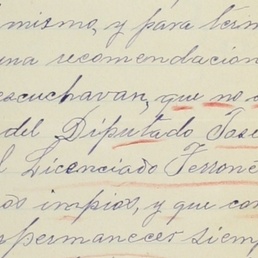 mismo, y para term
una recomendacion
escuchavan, que no
del Diputado Jose
l Licenciado Ferron
os impios, y que con
permanecer siemp